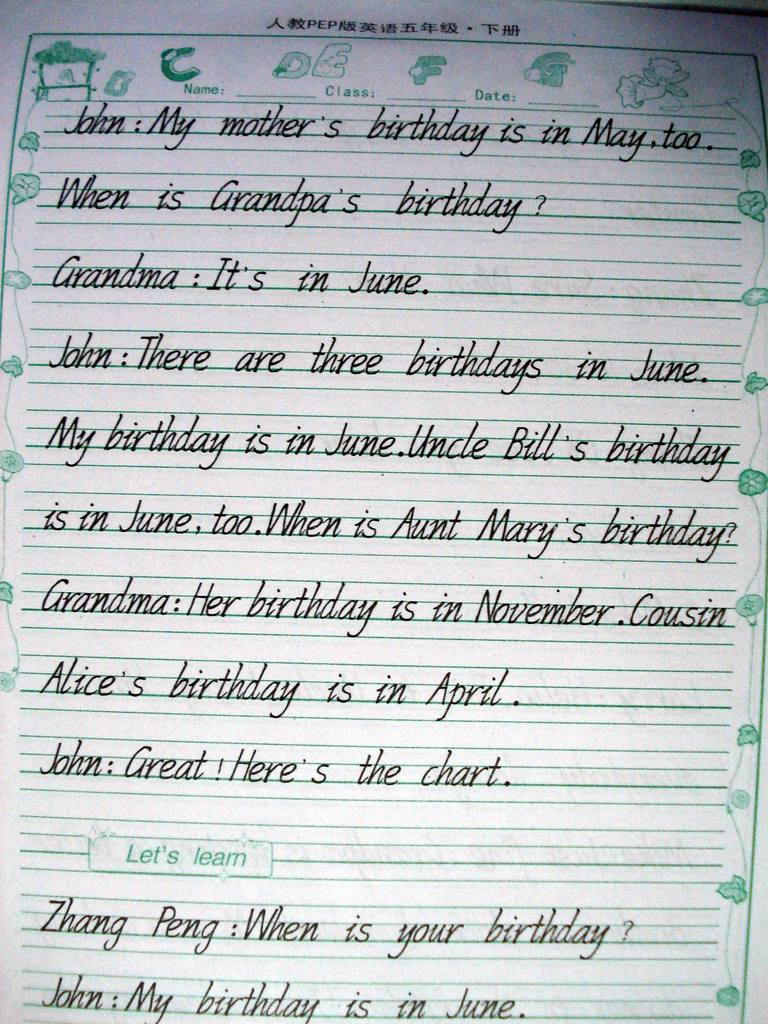 人教PEP版英语五年级·下册
B C D E F G
Name: Class: Date:
John: My mother's birthday is in May, too.
When is Grandpa's birthday?
Grandma: It's in June.
John: There are three birthdays in June.
My birthday is in June. Uncle Bill's birthday
is in June, too. When is Aunt Mary's birthday?
Grandma: Her birthday is in November. Cousin
Alice's birthday is in April.
John: Great! Here's the chart.
Let's learn
Zhang Peng: When is your birthday?
John: My birthday is in June.